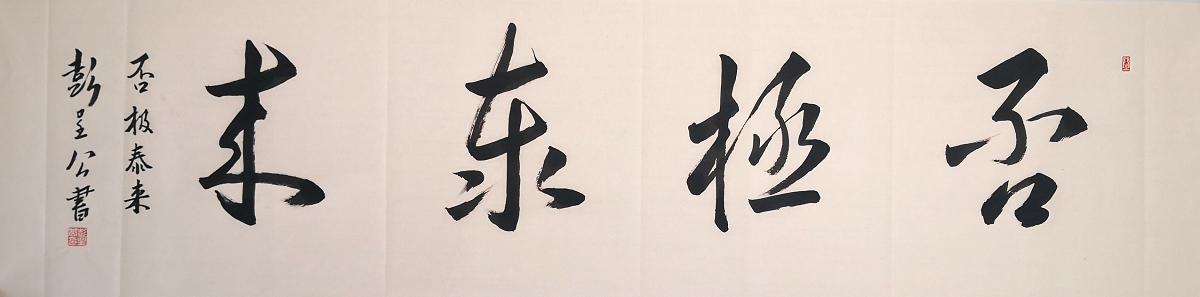 否極泰来
否极泰来
彭呈公書